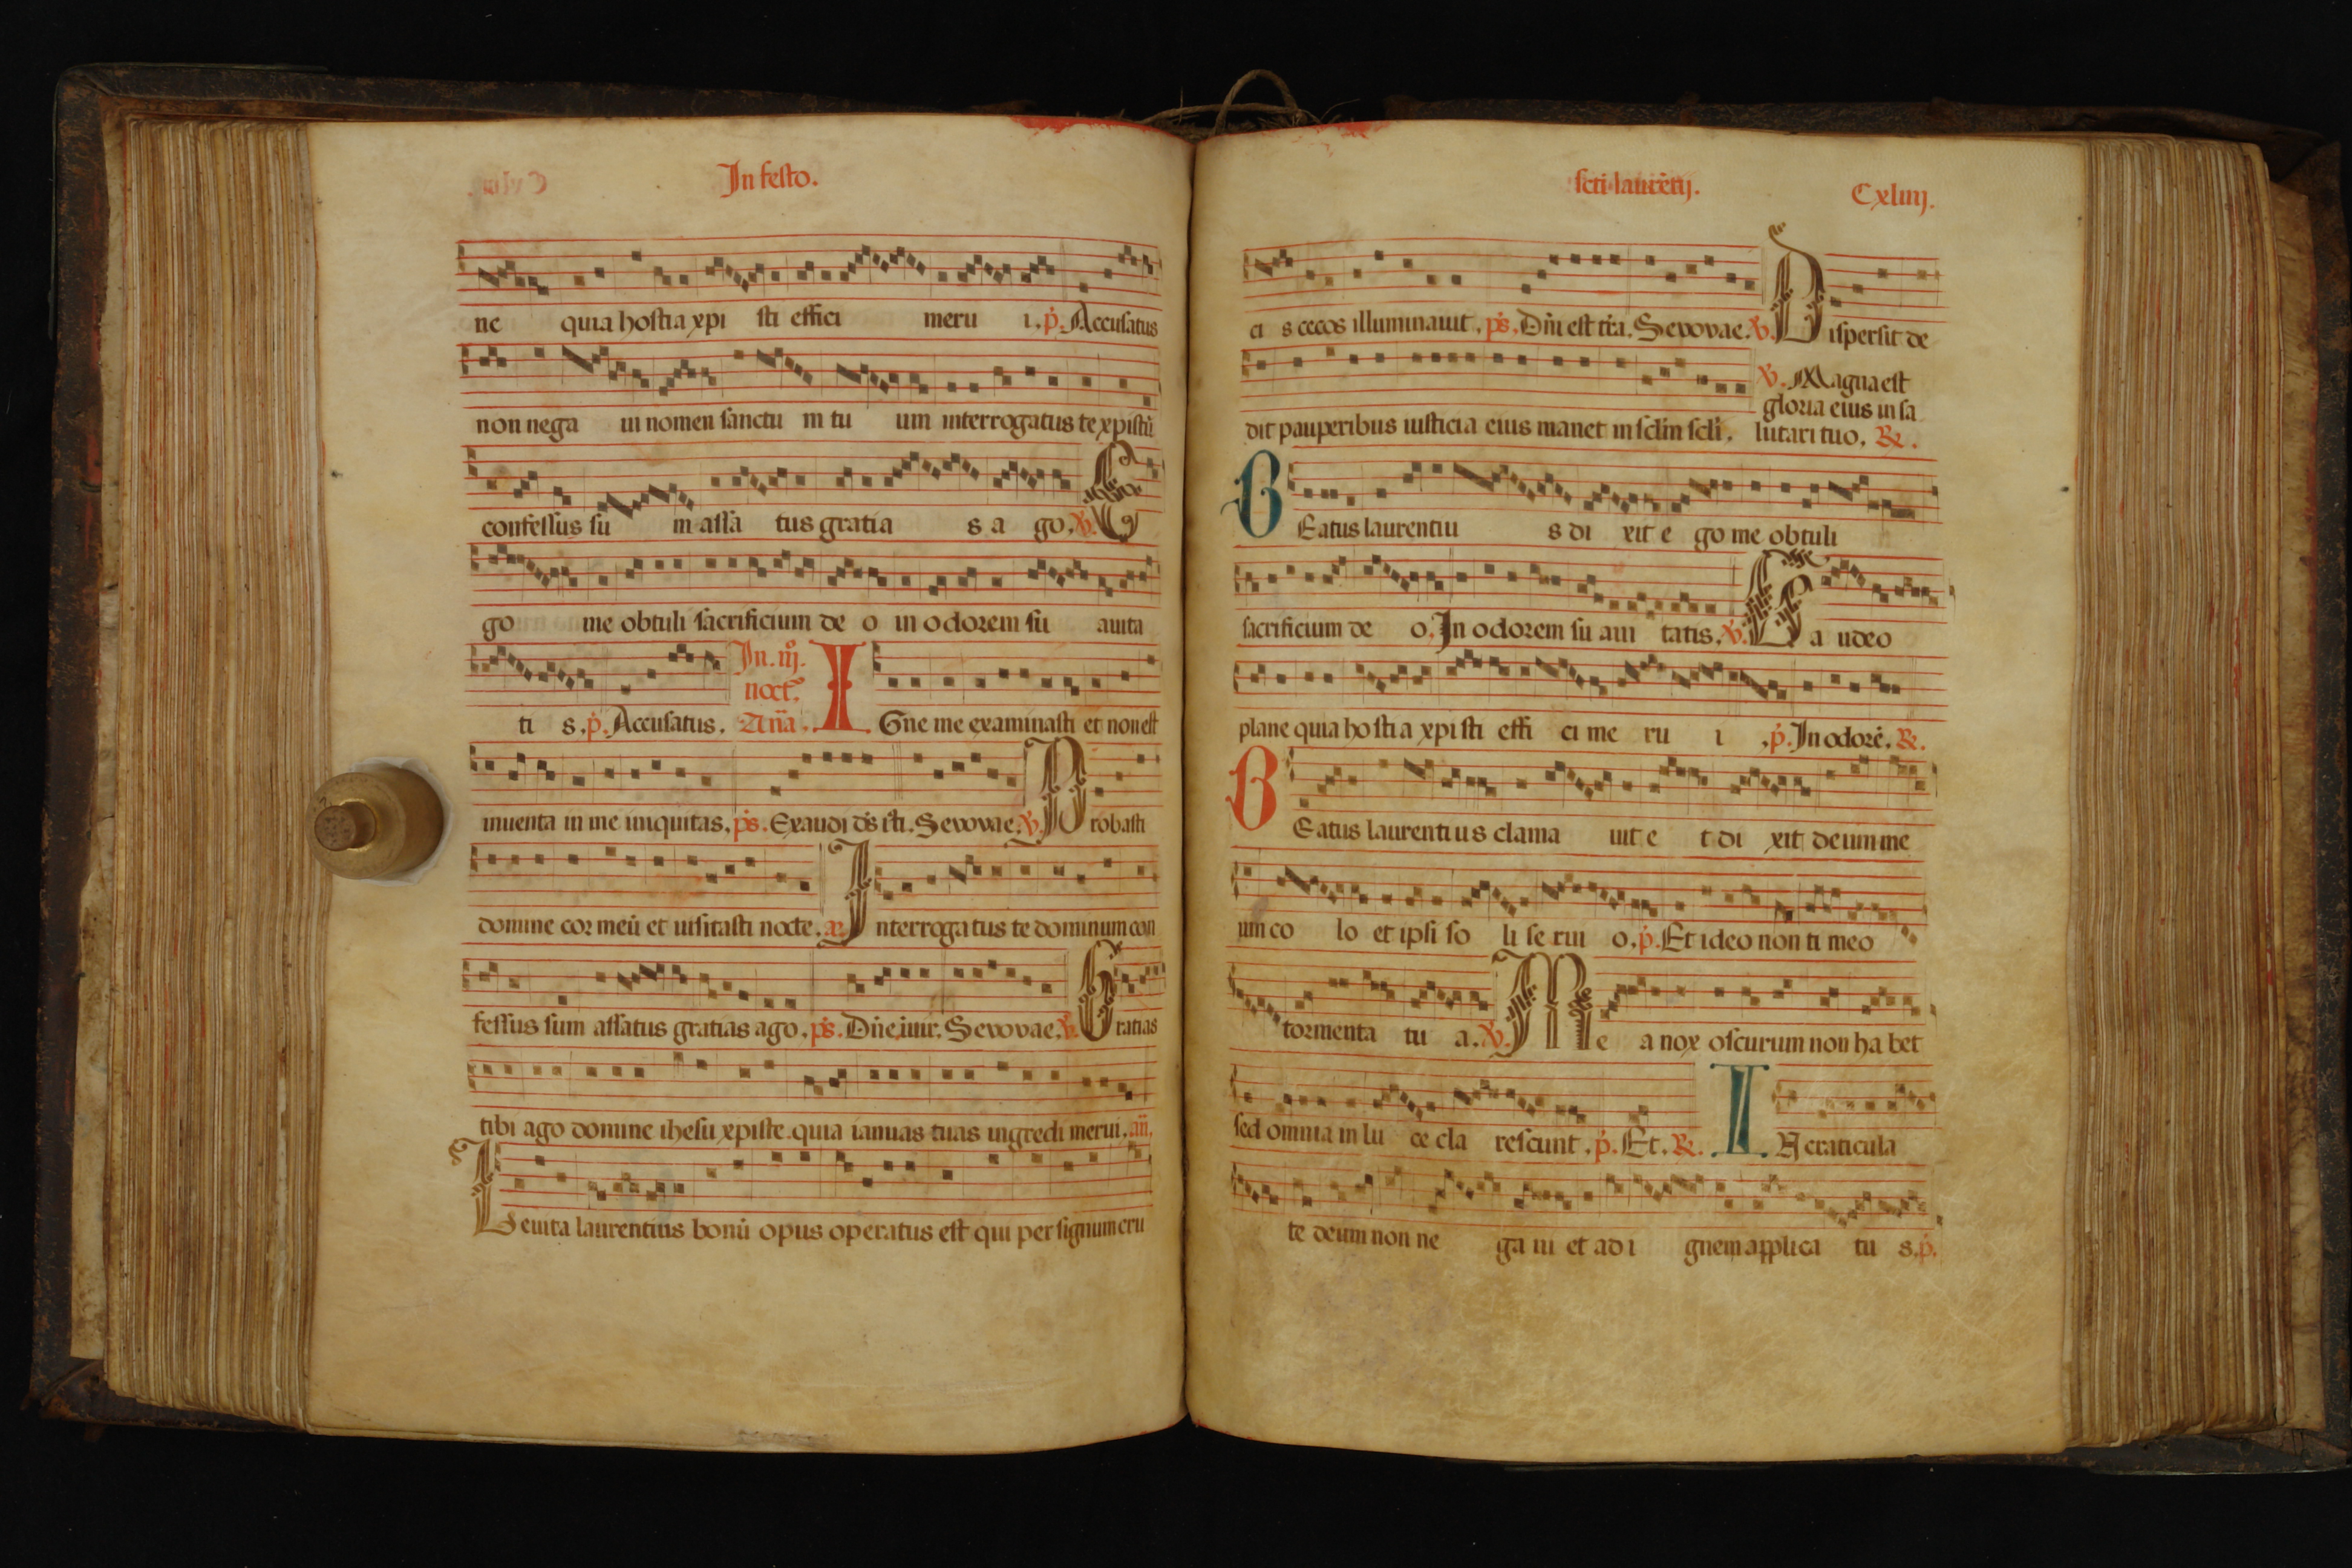 In festo.
ne quia hostia xpi sti effici meru i. p. Accusatus
non nega ui nomen sanctu m tu um interrogatus te xpistū
confessus su m assa tus gratia s a go. V. E
go me obtuli sacrificium de o in odorem su auita
ti s. p. Accusatus. In. iij. noct. Aña. I Gne me examinasti et non est
inuenta in me iniquitas, ps. Exaudi ds iisti. Sevovae. V. Probasti
domine cor meū et uisitasti nocte. añ Interrogatus te dominum con
fessus sum assatus gratias ago. ps. Dñe, inuir. Sevovae. V. Gratias
tibi ago domine ihesu xpiste. quia ianuas tuas ingredi merui. añ.
Leuita laurentius bonū opus operatus est qui per signum cru
scti laurētij. Cxliiij.
ci s cecos illuminauit. ps. Dñi est tr̄a. Sevovae. V. Dispersit de
dit pauperibus iusticia eius manet in sclm scli. V. Magna est
gloria eius in sa
lutari tuo. R.
BEatus laurentiu s di xit e go me obtuli
sacrificium de o. In odorem su aui tatis. V. Ga udeo
plane quia hostia xpi sti effi ci me ru i .p. In odorē. R.
BEatus laurentius clama uit e t di xit deum me
um co lo et ipsi so li se rui o. p. Et ideo non ti meo
tormenta tu a. V. Me a nox oscurum non ha bet
sed omnia in lu ce cla rescunt. p. Et. R. IN craticula
te deum non ne ga ui et ad i gnem applica tu s. p.